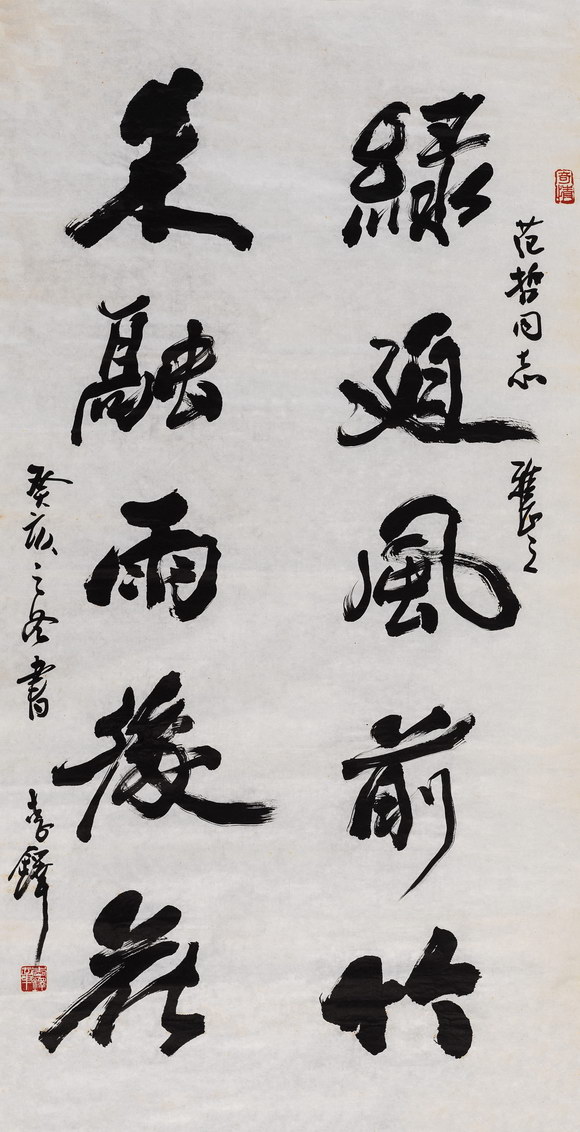 范哲同志 雅正之
綠廻風前竹
朱融雨後花
癸亥之冬書 李鐸